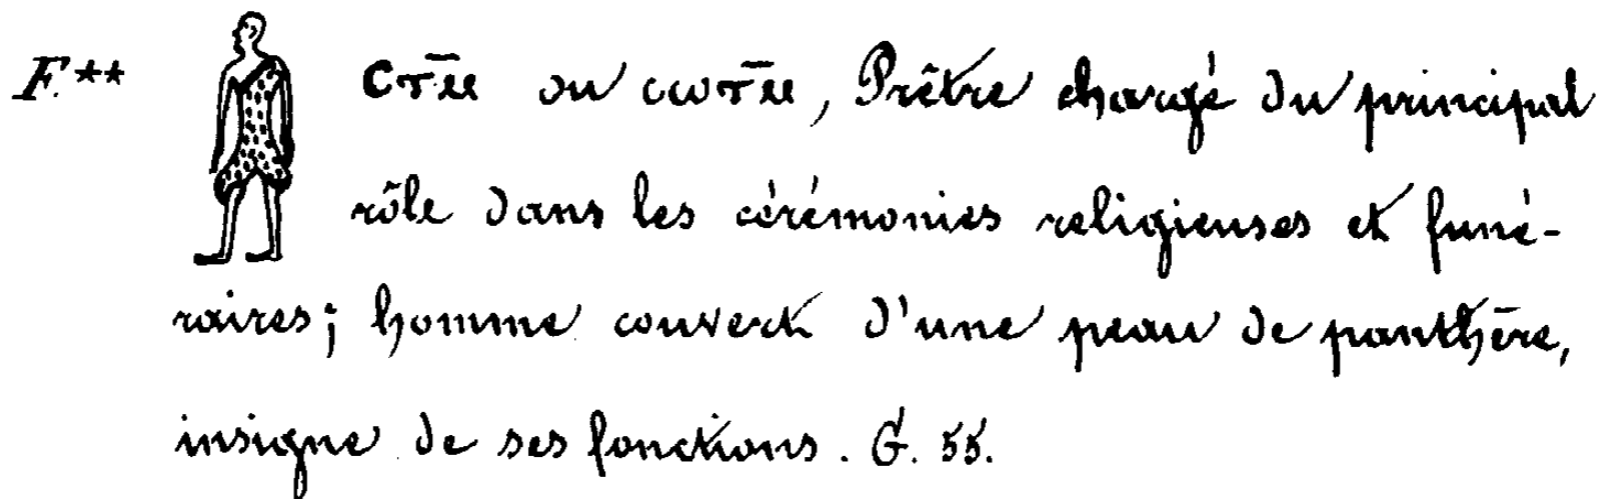 F.** ⲥⲧ̅ⲙ ou ⲥⲱⲧ̅ⲙ, Prêtre chargé du principal
rôle dans les cérémonies religieuses et funé-
raires; homme couvert d'une peau de panthère,
insigne de ses fonctions. G. 55.